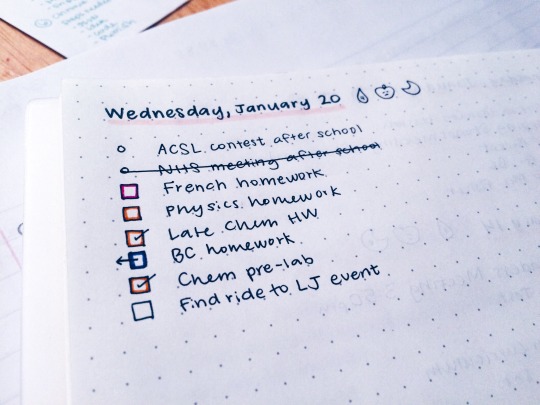 Wednesday, January 20
ACSL contest after school
NHS meeting after school
French homework
Physics homework
Late Chem HW
BC homework
Chem pre-lab
Find ride to LJ event